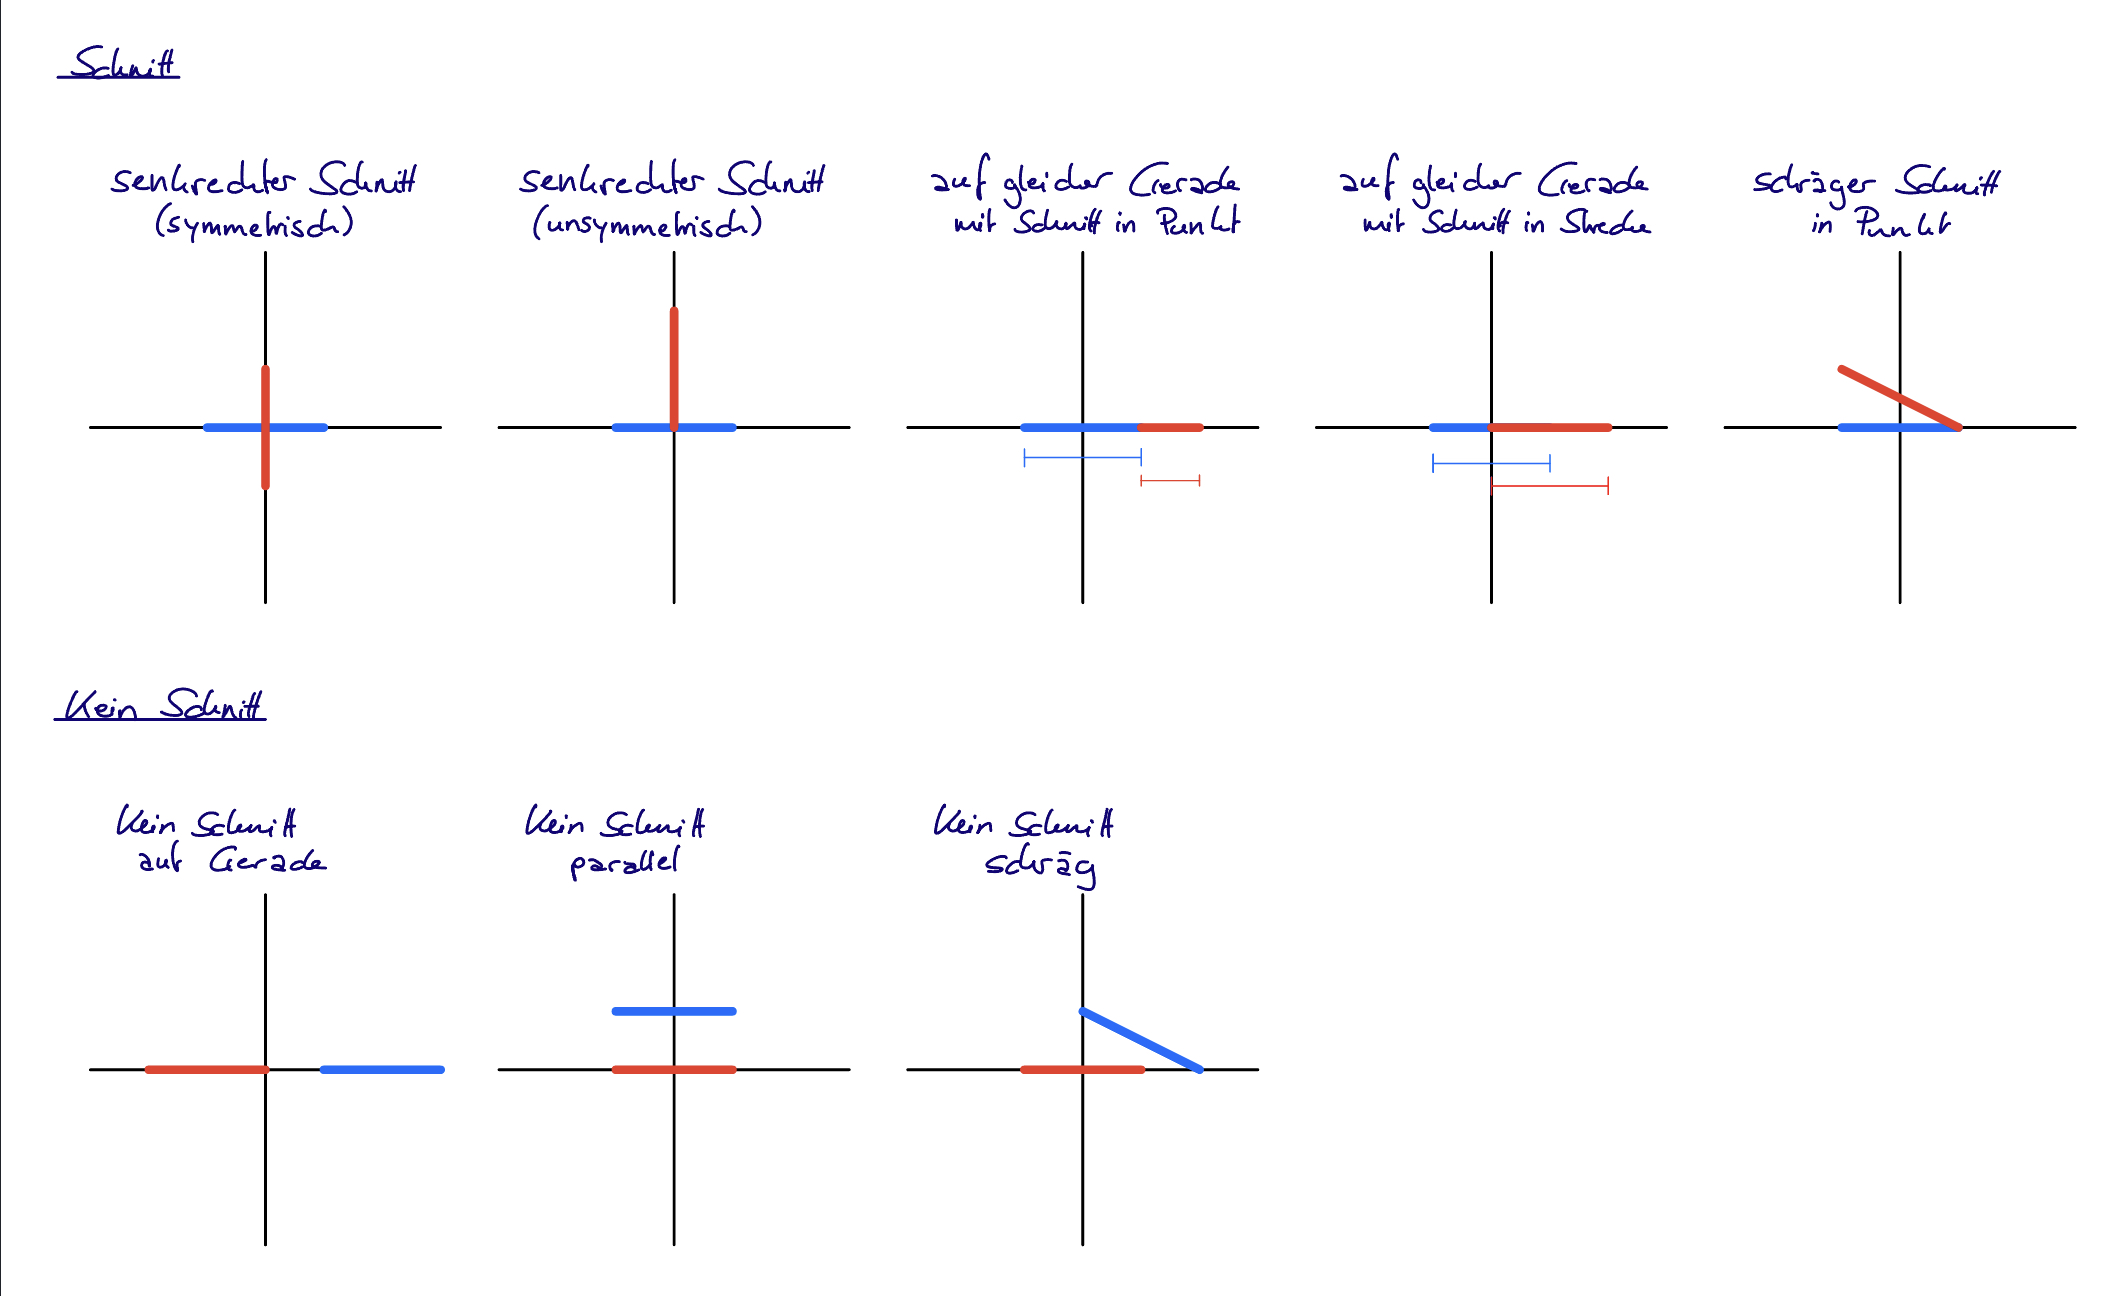 Schnitt
senkrechter Schnitt
(symmetrisch)
senkrechter Schnitt
(unsymmetrisch)
auf gleicher Gerade
mit Schnitt in Punkt
auf gleicher Gerade
mit Schnitt in Strecke
schräger Schnitt
in Punkt
Kein Schnitt
Kein Schnitt
auf Gerade
Kein Schnitt
parallel
Kein Schnitt
schräg